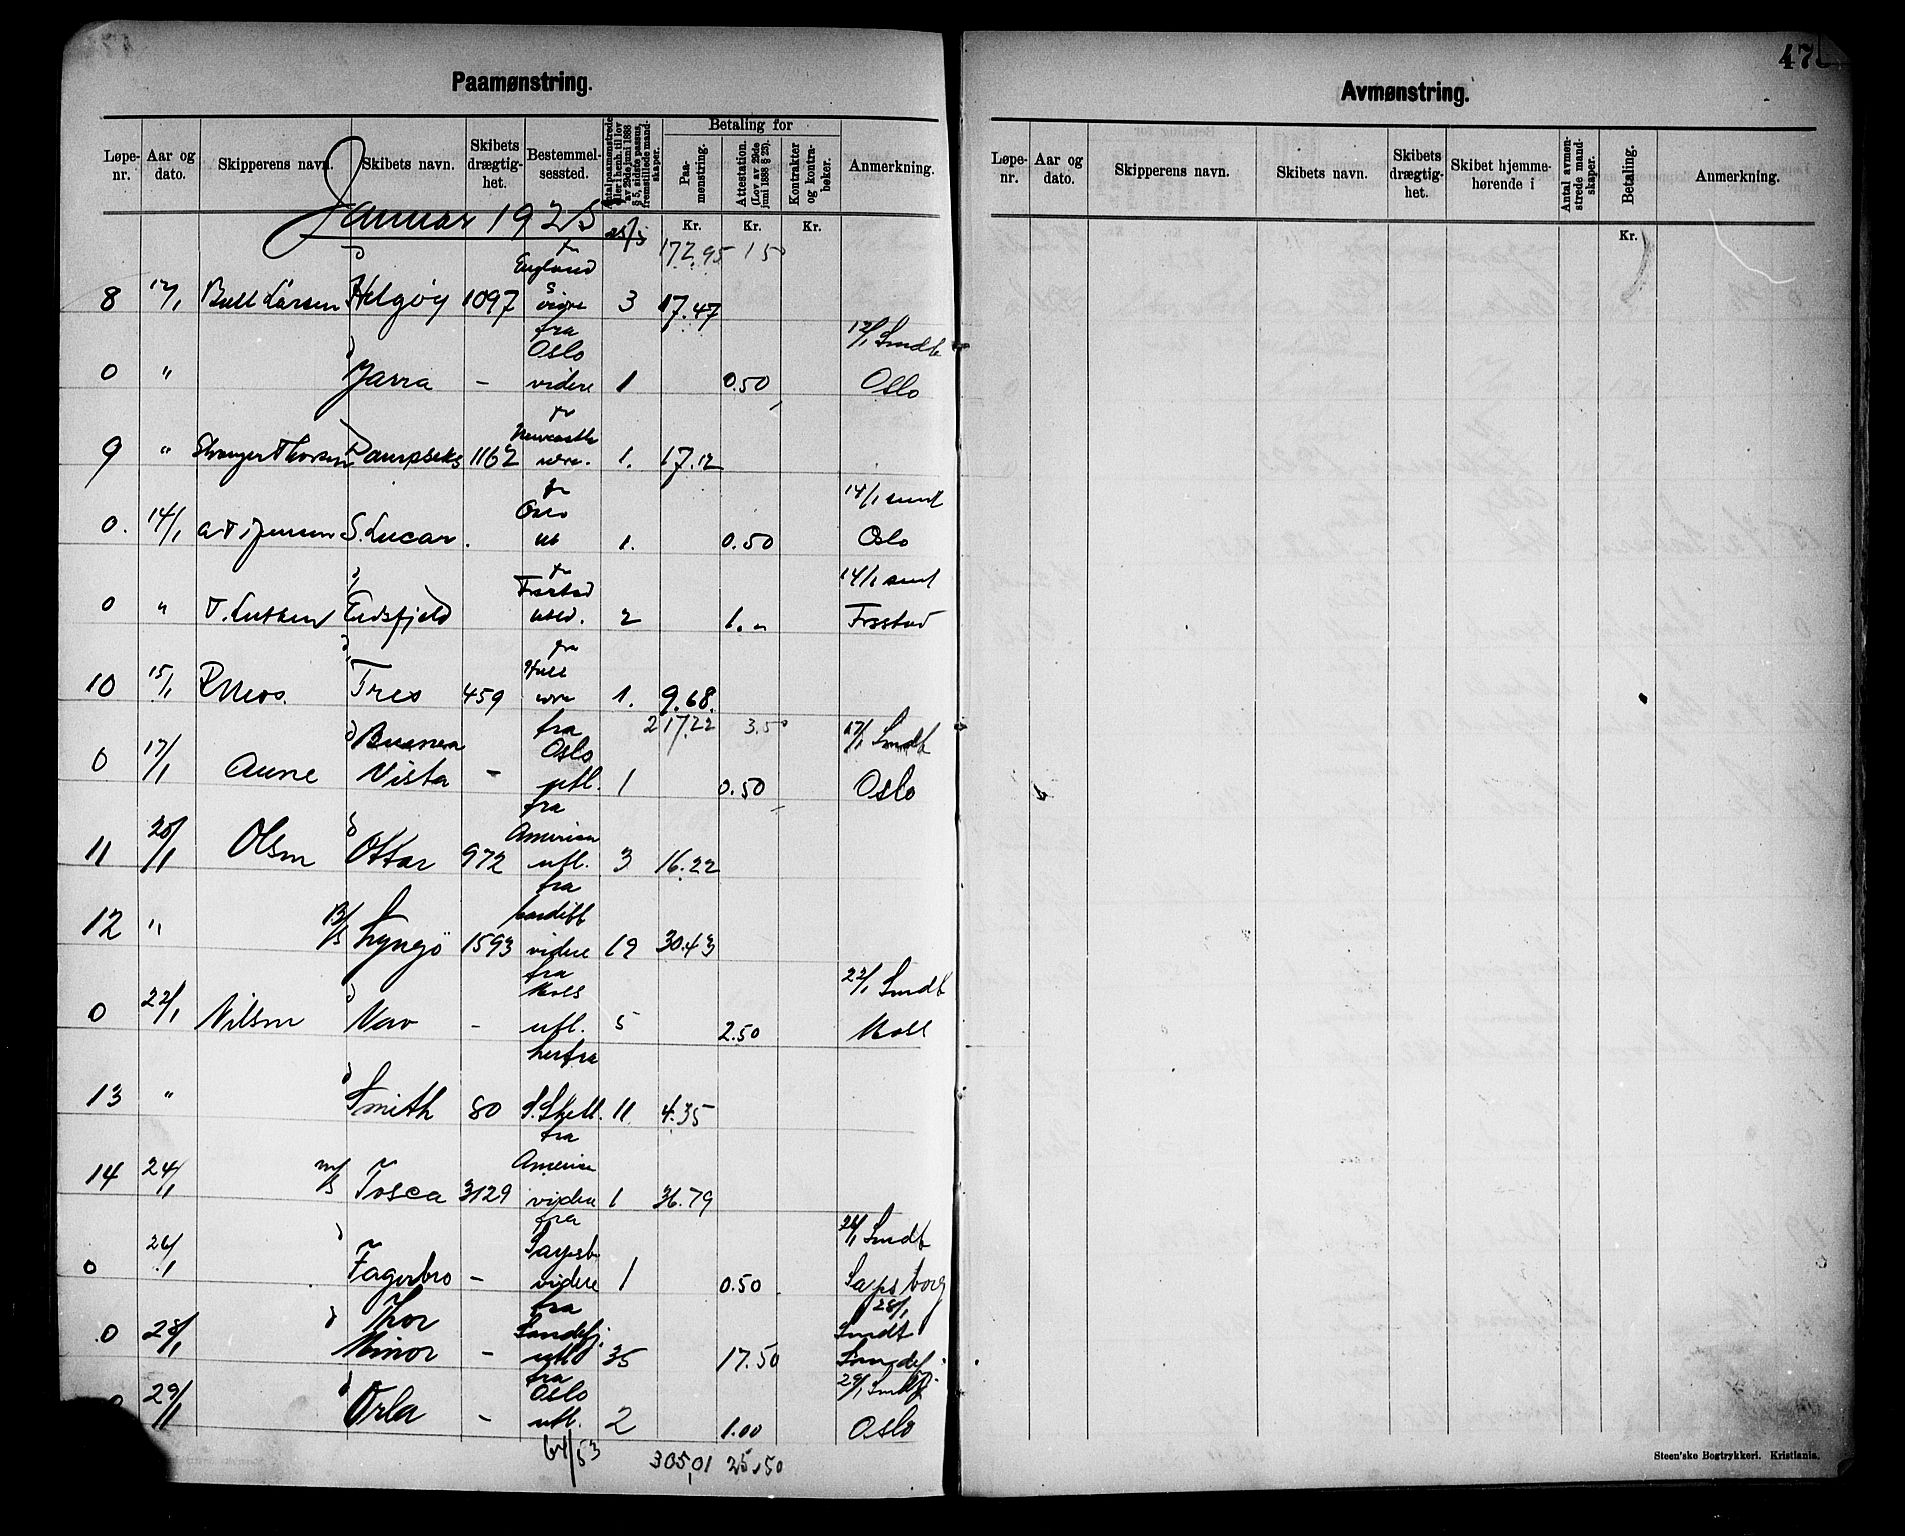 Paamønstring.
Løpe-nr. Aar og dato. Skipperens navn. Skibets navn. Skibets drægtig-het. Bestemmel-sessted. Betaling for Paa-mønstring. Attestation. (Lov av 29de juni 1888 § 25). Kontrakter og kontra-bøker. Anmerkning.
Januar 1925
Kr. Kr. Kr.
172.95 1 50
8 12/1 Bull Larsen Helgøy 1097 England 3 17.47
0 " Yarra - fra Oslo videre 1 0.50 12/1 Smdt Oslo
9 " 1162 Newcastle 1. 17.12
0. 14/1 S. Lucar. Oslo ut 1. 0.50 14/1 smt Oslo
0 " Eidsfjeld Frstad utld. 2 1. " 14/1 smt Frstad
10 15/1 Tres 459 fra Hull 1. 9.68.
217.22 3.50
0 17/1 Aune Buena Vista - fra Oslo utl. 1 0.50 17/1 Smdt Oslo
11 20/1 Olsen Ottar 972 fra Amerika utl. 3 16.22
12 " Lyngö 1593 fra Cardiff videre 19 30.43
0 22/1 Nilsen Vav - fra Moss utl. 5 2.50 22/1 Smdt
13 " Smith 80 herfra S. Shetl. 11 4.35
14 24/1 m/s Tosca 3129 fra Amerika videre 1 36.79
0 26/1 Fagerbro - fra Sarpsb. videre 1 0.50 26/1 Smdt Sarpsborg
0 28/1 Thor Minor - fra Sandefj. utld 35 17.50 28/1 Smdt Sandefj.
29/1 Orla - fra Oslo utl. 2 1.00 29/1 Smdt Oslo
64/53 305,01 25.50
47
Avmønstring.
Løpe-nr. Aar og dato. Skipperens navn. Skibets navn. Skibets drægtig-het. Skibet hjemme-hørende i Antal avmøn-strede mand-skaper. Betaling. Anmerkning.
Kr.
Steen'ske Bogtrykkeri. Kristiania.